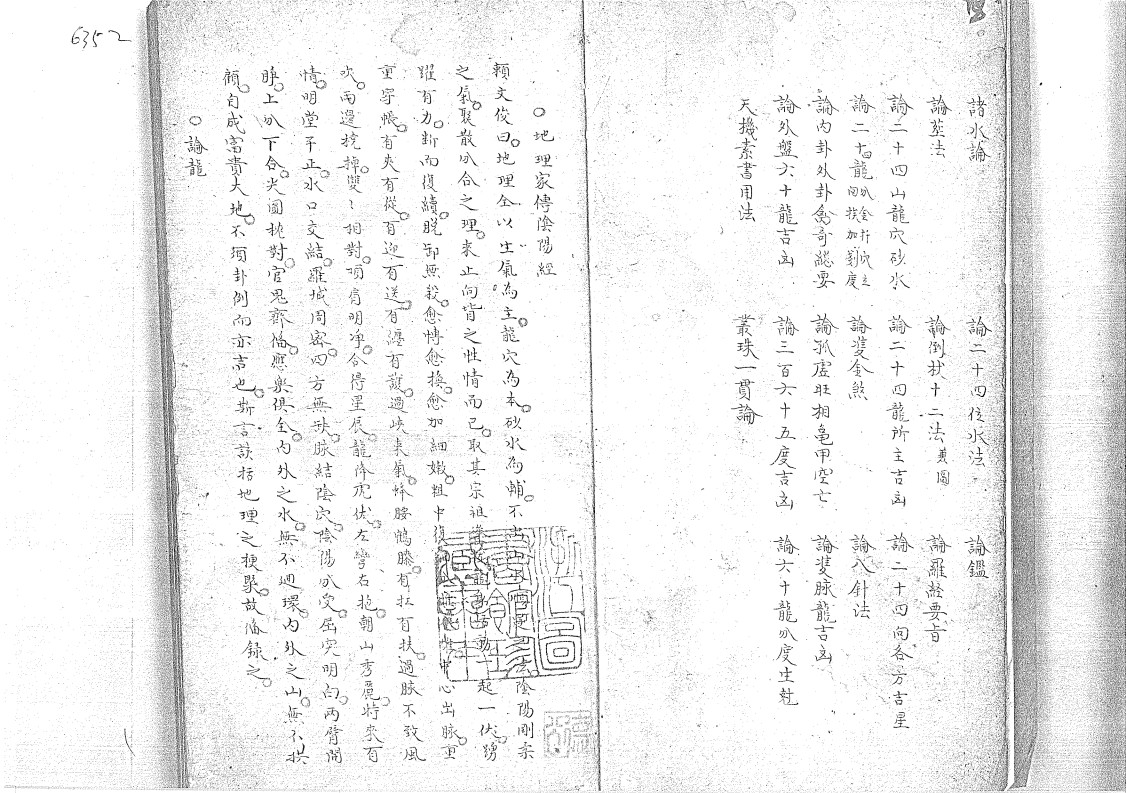 諸水論 論二十四位水法 論鑑
論塟法 論倒杖十二法兼圖 論羅經要旨
論二十四山龍穴砂水 論二十四龍所主吉凶 論二十四向各方吉星
論二十四龍分金 論雙金煞 論八針法
論內卦外卦禽奇總要 論孤虛旺相亀甲空亡 論雙脉龍吉凶
論外盤六十龍吉凶 論三百六十五度吉凶 論六十龍分度生尅
天機素書用法 叢珠一貫論
○地理家傳陰陽經
賴文俊曰地理全以生氣為主龍穴為本砂水為輔不出 陰陽剛柔
之氣聚散分合之理來止向背之性情而已取其宗祖 一起一伏踴
躍有力断而復續脱卸無殺愈博愈換愈加細嫩粗中 中心出脉重
重穿帳有夾有從有迎有送有纏有護過峽束氣蜂腰鶴膝有扛有扶過脉不致風
吹兩邊橈棹雙〻相對頂肩明净合得星辰龍降虎伏左彎右抱朝山秀麗特來有
情明堂平正水口交結羅城周密四方無缺脉結陰穴陰陽分受屈突明白兩臂開
睁上分下合尖圓枕對官鬼齊備應樂俱全內外之水無不迴環內外之山無不拱
顧自成富貴大地不須卦例而亦吉也斯言該括地理之梗槩故備錄之
○論龍
6352